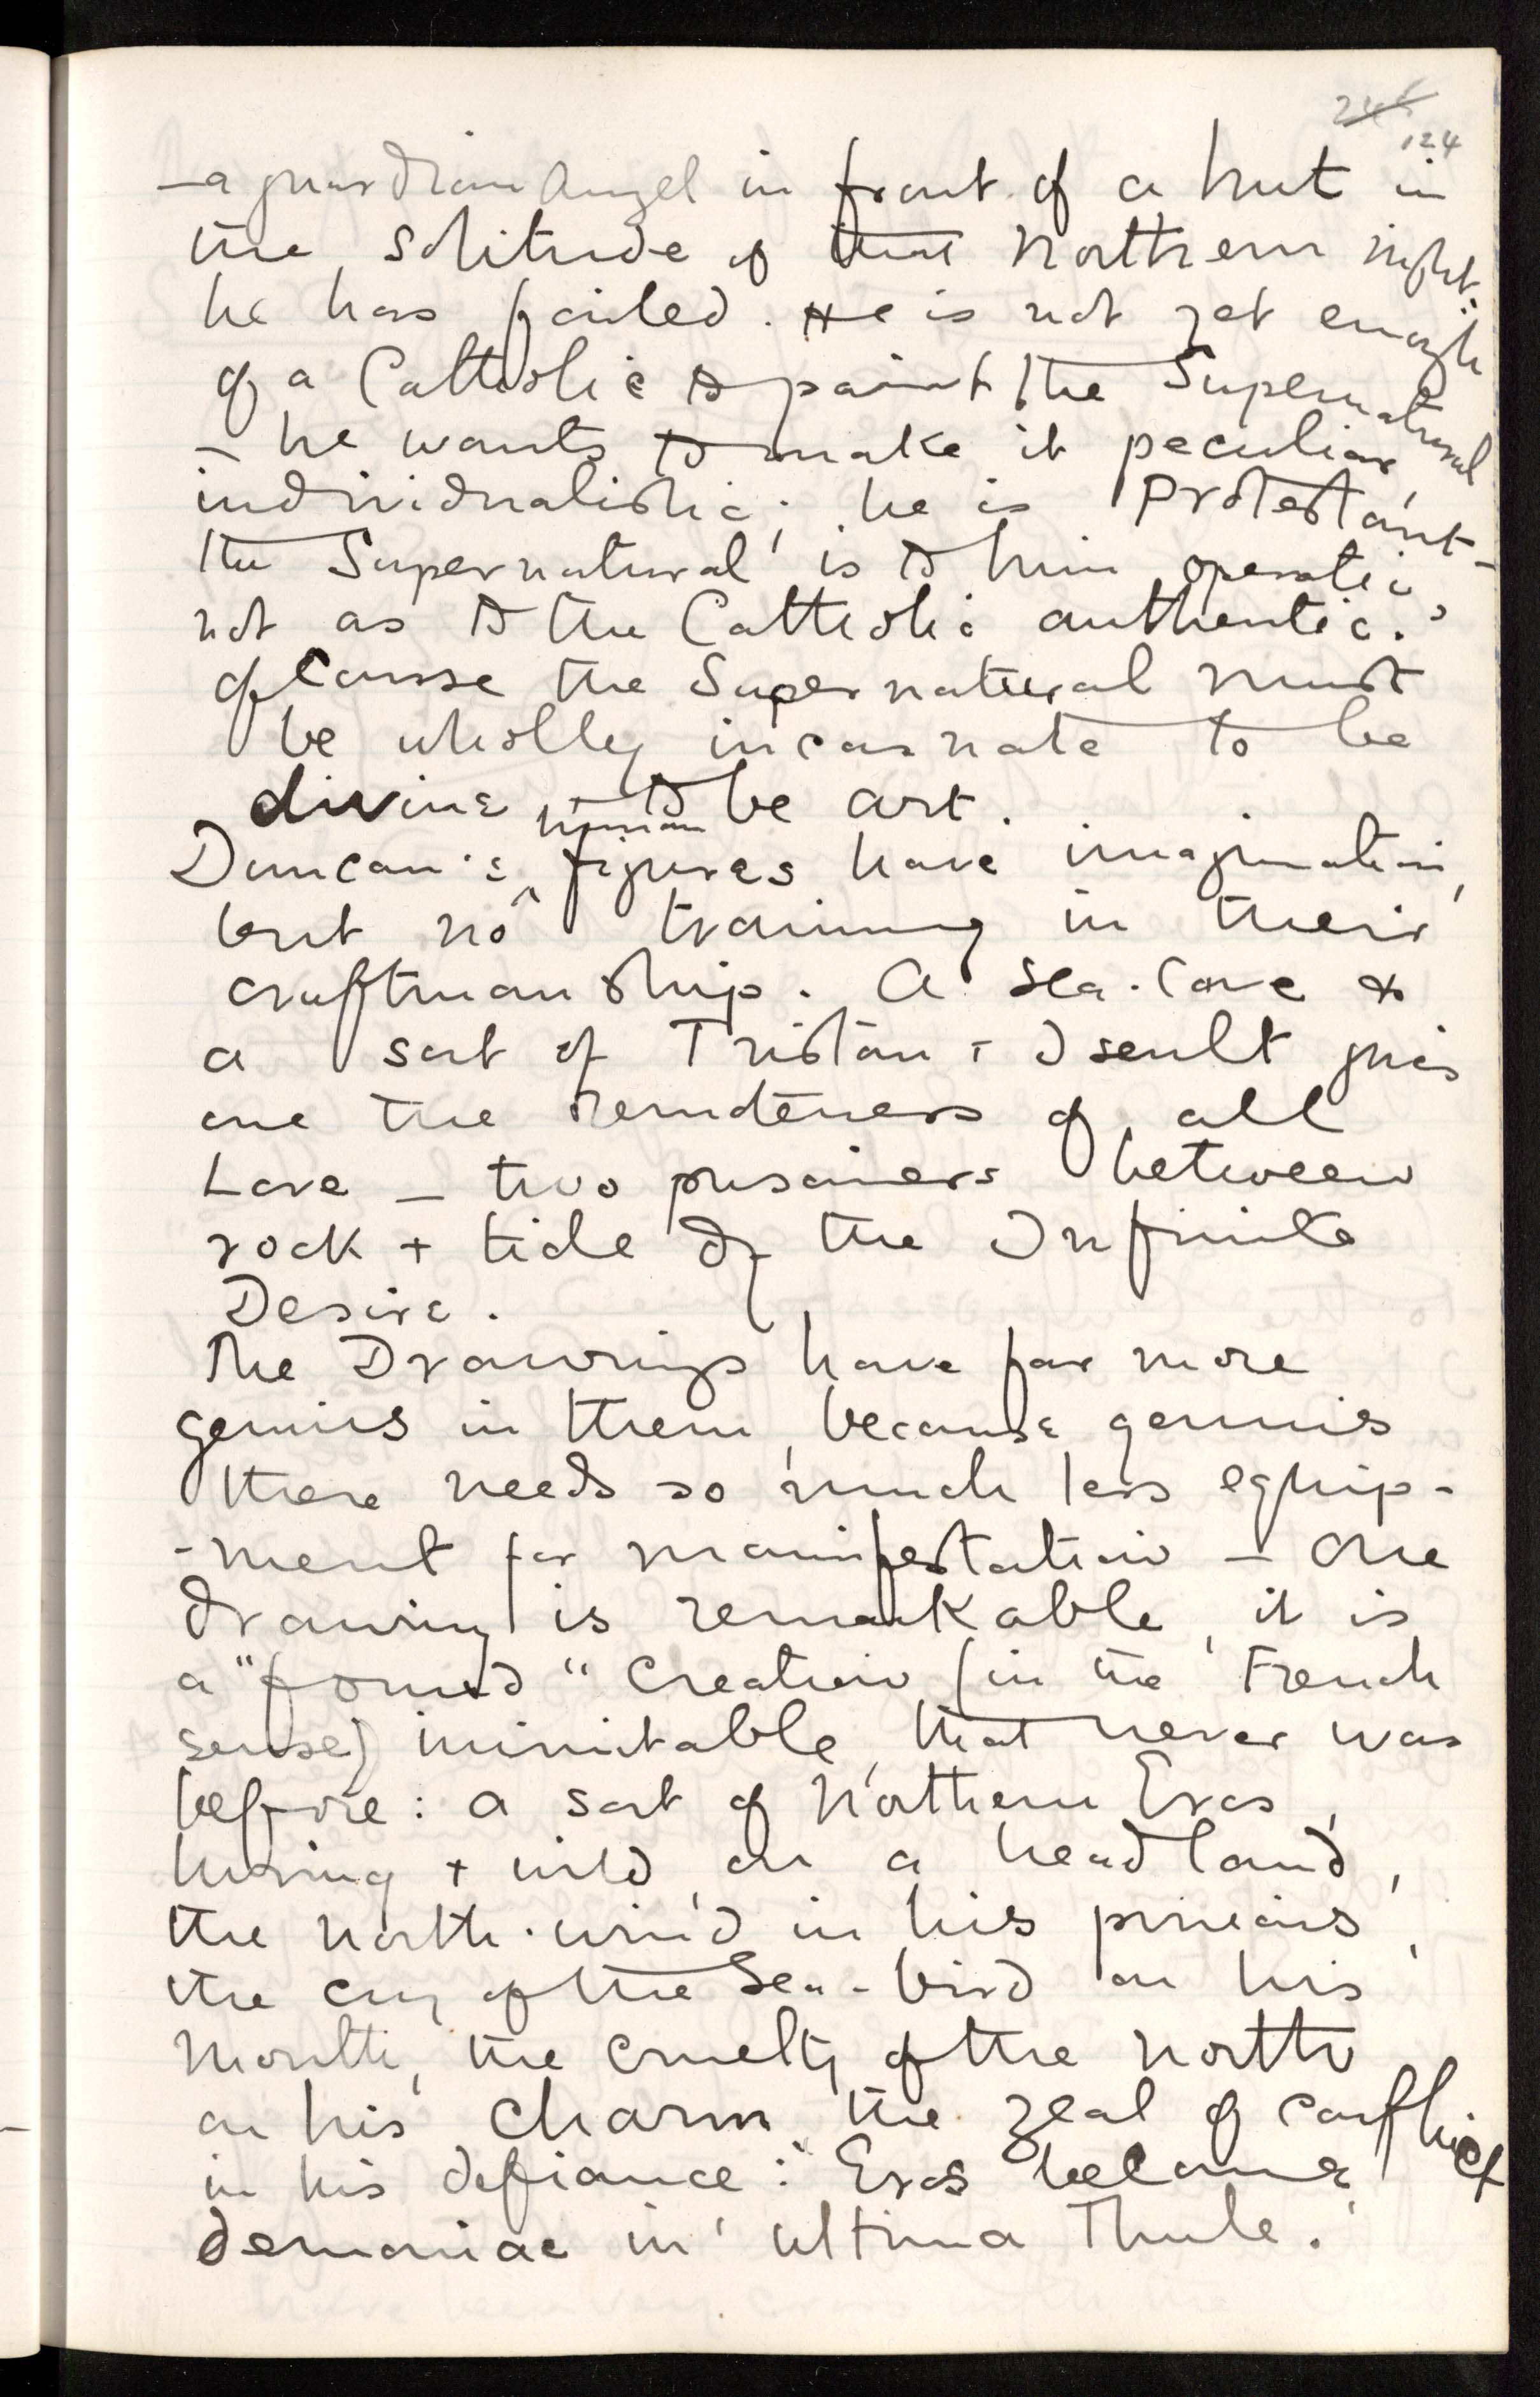 246
124
– a guardian Angel in front of a hut in
the solitude of that Northern night.
he has failed. He is not yet enough
of a Catholic to paint the Supernatural
– he wants to make it peculiar,
individualistic; he is Protestant –
the Supernatural is to him operatic,
not as to the Catholic authentic.
Of Course the Supernatural must
be wholly incarnate to be
divine – to be art.
human
Duncan's ^ figures have imagination,
but no training in their
craftmanship. A Sea-Cave &
a sort of Tristan & Iseult gives
one the remoteness of all
Love – two prisoners between
rock + tide of the Infinite
Desire.
The Drawings have far more
genius in them, because genius
there needs so much less equip-
-ment for manifestation – One
drawing is remarkable, it is
a "formed" creation (in the French
sense) inimitable, that never was
before: a sort of Northern Eros,
luring + wild, on a headland,
the north-wind in his pinions,
the cry of the Sea-bird on his
mouth, the cruelty of the north
on his charm, the zeal of conflict
in his defiance: Eros become
demoniac in ultima Thule.